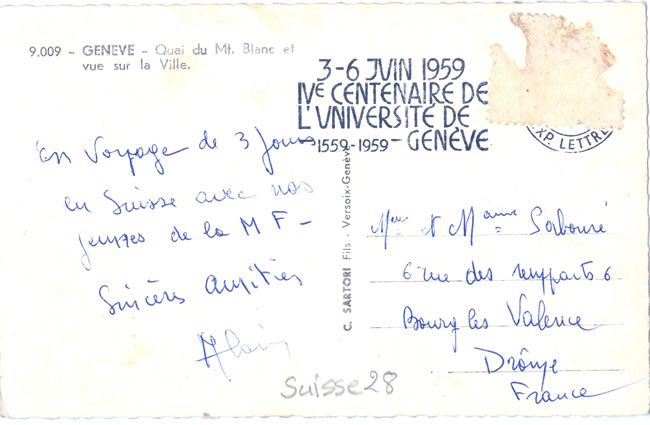 9.009 - GENEVE - Quai du Mt. Blanc et
vue sur la Ville.
3-6 JUIN 1959
IVE CENTENAIRE DE
L'UNIVERSITÉ DE
1559-1959 - GENÈVE
EXP. LETTRE
En voyage de 3 jours
en Suisse avec nos
jeunes de la M F -
Sincères amitiés
Alain
C. SARTORI Fils - Versoix-Genève
Mr et Madame
6 rue des remparts 6
Bourg les Valence
Drôme
France
Suisse28